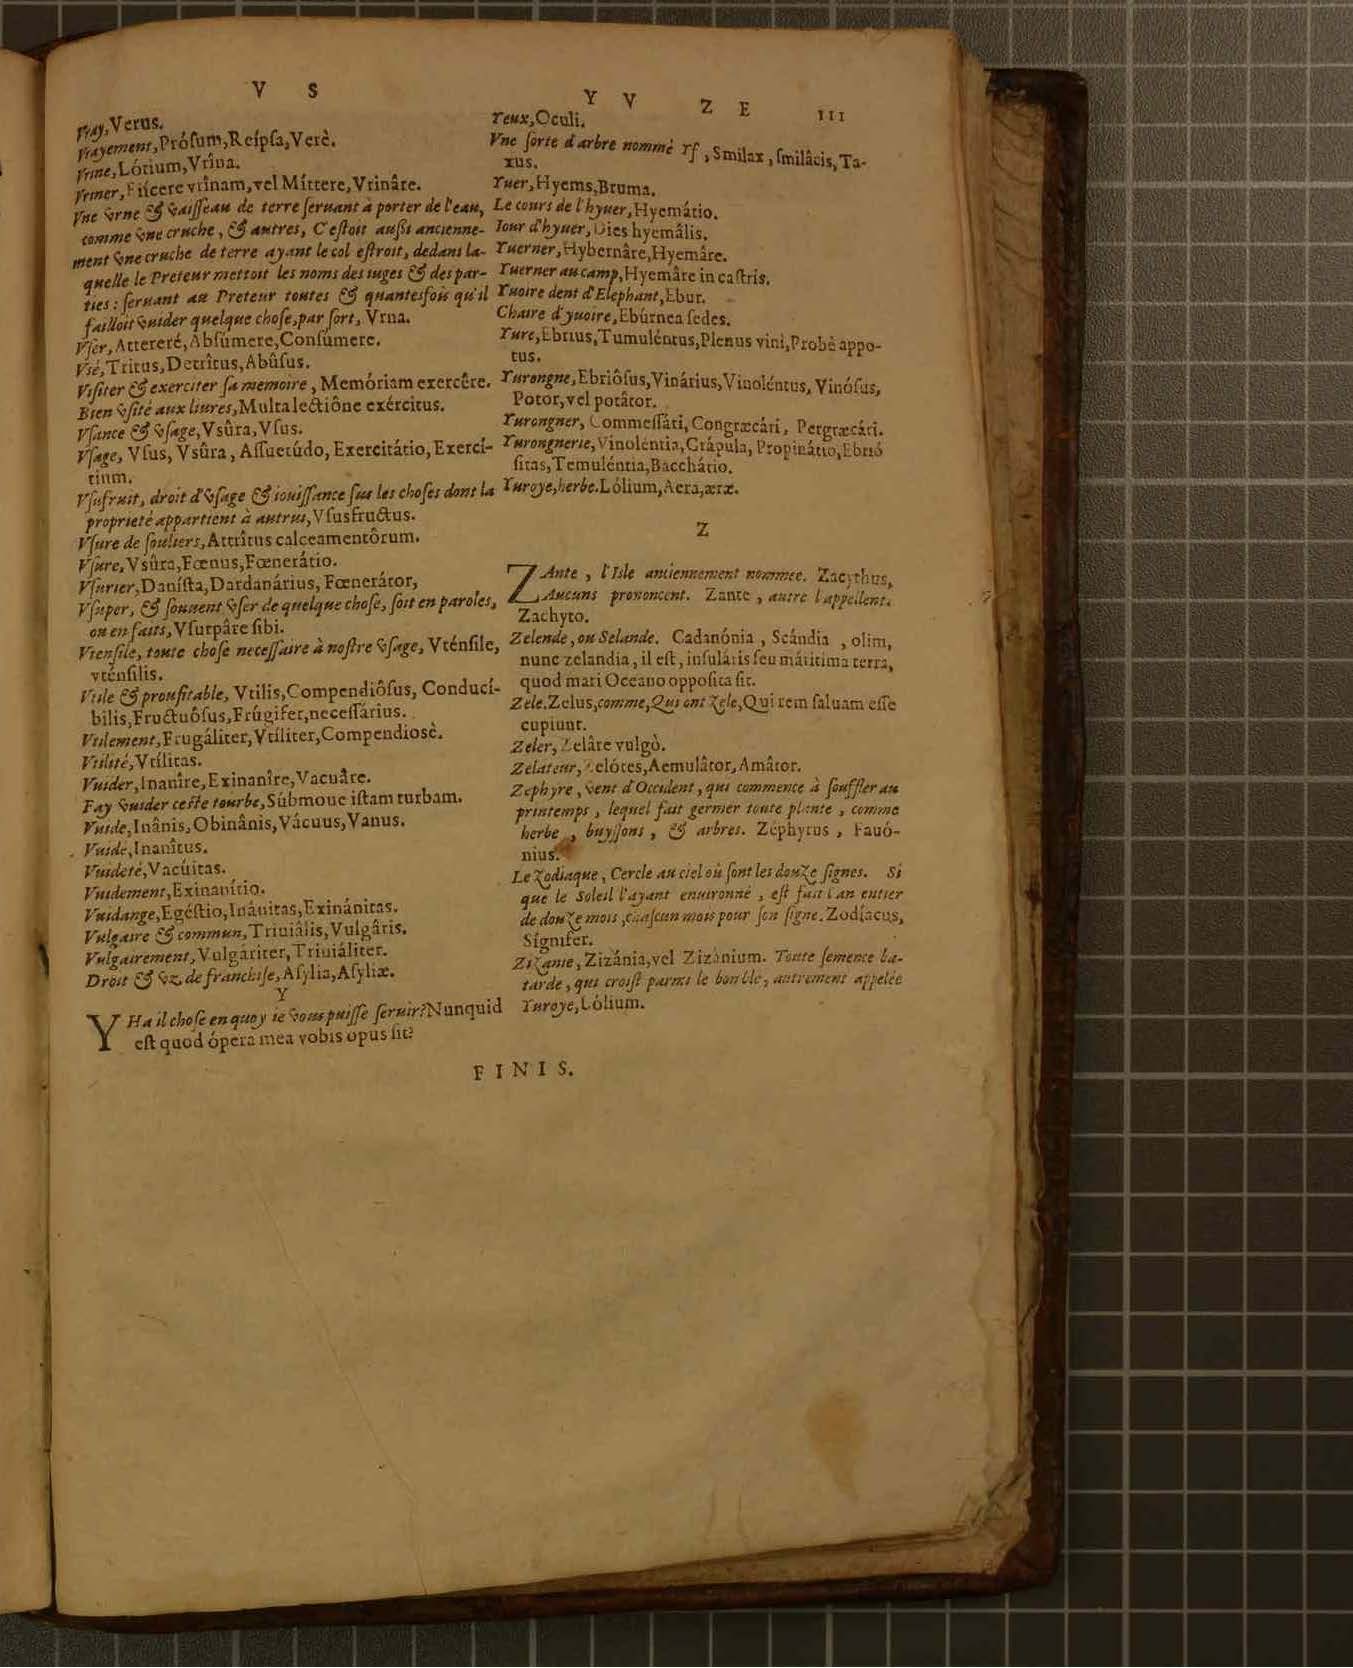 V S
Vray, Verus.
Vrayement, Prósum, Reípſa, Verè.
Vrine, Lótium, Vrîna.
Vriner, Eiícere vrînam, vel Míttere, Vrinâre.
Vne vrne & vaiſſeau de terre ſeruant à porter de l'eau,
comme vne cruche, & autres, C'eſtoit auſſi ancienne-
ment vne cruche de terre ayant le col eſtroit, dedans la-
quelle le Preteur mettoit les noms des iuges & des par-
ties: ſeruant au Preteur toutes & quantesfois qu'il
failloit vuider quelque choſe, par ſort, Vrna.
Vſer, Attereré, Abſúmere, Conſúmere.
Vſé, Tritus, Detrîtus, Abûſus.
Viſiter & exerciter ſa memoire, Memóriam exercêre.
Bien vſité aux liures, Multa lectiône exércitus.
Vſance & vſage, Vsûra, Vſus.
Vſage, Vſus, Vsûra, Aſſuetúdo, Exercitátio, Exercí-
tium.
Vſufruit, droit d'vſage & iouiſſance ſus les choſes dont la
proprieté appartient à autrui, Vſusfructus.
Vſure de ſouliers, Attrîtus calceamentôrum.
Vſure, Vsûra, Fœnus, Fœnerátio.
Vſurier, Daníſta, Dardanárius, Fœnerátor,
Vſuper, & ſouuent vſer de quelque choſe, ſoit en paroles,
ou en faits, Vſurpâre ſibi.
Vtenſile, toute choſe neceſſaire à noſtre vſage, Vténſile,
vténſilis.
Vtile & proufitable, Vtilis, Compendiôſus, Conducí-
bilis, Fructuôſus, Frúgifer, neceſſárius.
Vtilement, Frugáliter, Vtíliter, Compendiosè.
Vtilité, Vtílitas.
Vuider, Inanîre, Exinanîre, Vacuâre.
Fay vuider ceſte tourbe, Súbmoue iſtam turbam.
Vuide, Inânis, Obinânis, Vácuus, Vanus.
Vuide, Inanîtus.
Vuideté, Vacúitas.
Vuidement, Exinanítio.
Vuidange, Egéſtio, Inánitas, Exinánitas.
Vulgaire & commun, Triuiâlis, Vulgâris.
Vulgairement, Vulgáriter, Triuiáliter.
Droit & vz de franchiſe, Aſylia, Aſyliæ.
Y
Y Ha il choſe en quoy ie vous puiſſe ſeruir? Nunquid
eſt quod ópera mea vobis opus ſit?
Y V Z E III
Yeux, Oculi.
Vne ſorte d'arbre nommé Yf, Smilax, ſmilâcis, Ta-
xus.
Yuer, Hyems, Bruma.
Le cours de l'hyuer, Hyemátio.
Iour d'hyuer, Dies hyemâlis.
Yuerner, Hybernâre, Hyemâre.
Yuerner au camp, Hyemâre in caſtris.
Yuoire dent d'Elephant, Ebur.
Chaire d'yuoire, Ebúrnea ſedes.
Yure, Ebrius, Tumuléntus, Plenus vini, Probè appo-
tus.
Yurongne, Ebriôſus, Vinárius, Vinoléntus, Vinóſus,
Potor, vel potâtor.
Yurongner, Commeſſári, Congræcári, Pergræcári.
Yurongnerie, Vinoléntia, Crápula, Propinátio, Ebrió
ſitas, Temuléntia, Bacchátio.
Yuroye, herbe. Lólium, Aera, æræ.
Z
ZAnte, l'Isle anciennement nommee. Zacythus,
Aucuns prononcent. Zante, autre l'appellent.
Zachyto.
Zelende, ou Selande. Cadanónia, Scándia, olim,
nunc zelandia, il eſt, inſuláris ſeu máritima terra,
quod mari Oceano oppoſita ſit.
Zele. Zelus, comme, Qui ont Zele, Qui rem ſaluam eſſe
cupiunt.
Zeler, Zelâre vulgò.
Zelateur, Zelótes, Aemulâtor, Amâtor.
Zephyre, vent d'Occident, qui commence à ſouffler au
printemps, lequel fait germer toute plante, comme
herbe, buyſſons, & arbres. Zéphyrus, Fauó-
nius.
Le Zodiaque, Cercle au ciel où ſont les douZe ſignes. Si
que le Soleil l'ayant enuironné, eſt fait l'an entier
de douZe mois, chaſcun mois pour ſon ſigne. Zodíacus,
Sígnifer.
ZiZanie, Zizánia, vel Zizánium. Toute ſemence ba-
tarde, qui croiſt parmi le bon ble, autrement appelée
Yuroye, Lólium.
FINIS.